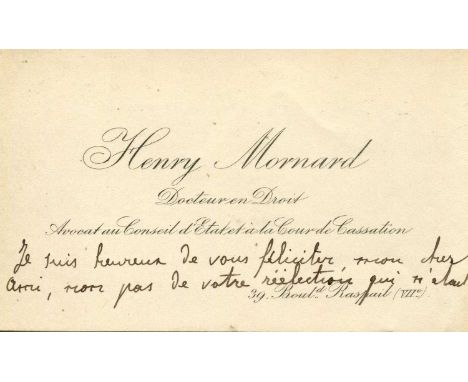 Henry Mornard
Docteur en Droit
Avocat au Conseil d'Etat et à la Cour de Cassation
Je suis heureux de vous féliciter mon cher
ami, non pas de votre réélection qui n'était
39, Boul.d Raspail (VIIe)